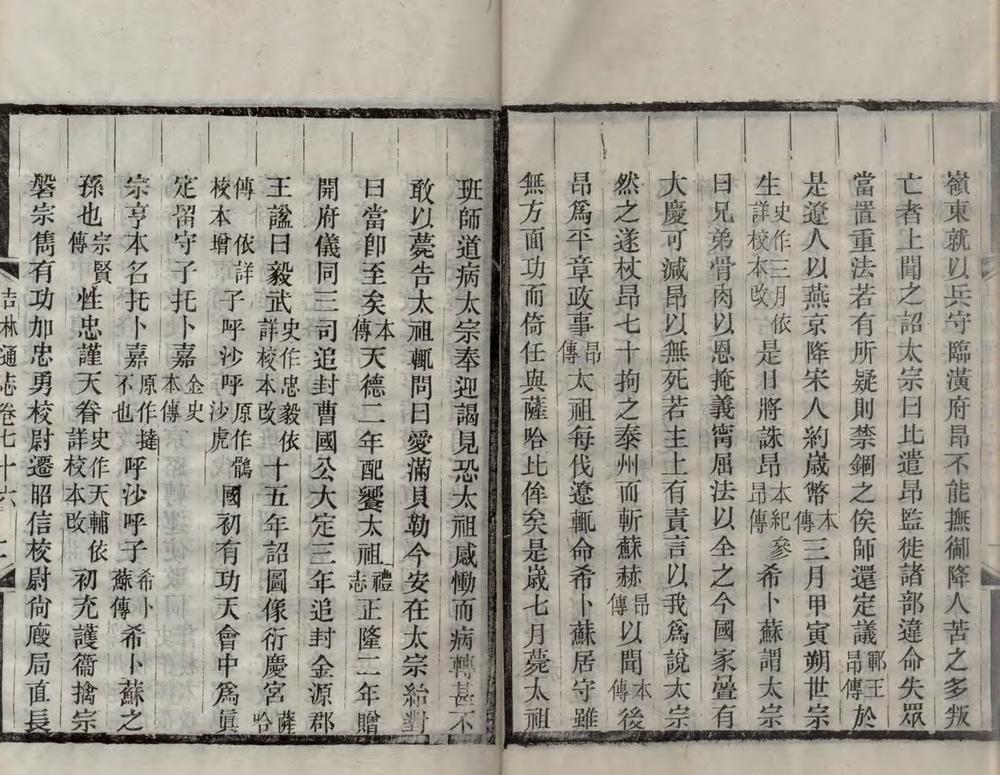 嶺東就以兵守臨潢府昂不能撫御降人苦之多叛
亡者上聞之詔太宗曰比遣昂監徙諸部違命失眾
當置重法若有所疑則禁錮之俟師還定議鄆王昂傳於
是遼人以燕京降宋人約歲幣本傳三月甲寅朔世宗
生史作三月依詳校本改是日將誅昂本紀參昂傳希卜蘇謂太宗
曰兄弟骨肉以恩掩義甯屈法以全之今國家疊有
大慶可減昂以無死若主上有責言以我為說太宗
然之遂杖昂七十拘之泰州而斬蘇赫昂傳以聞本傳後
昂為平章政事昂傳太祖每伐遼輒命希卜蘇居守雖
無方面功而倚任與薩哈比侔矣是歲七月薨太祖
班師道病太宗奉迎謁見恐太祖感慟而病轉甚不
敢以薨告太祖輒問曰愛滿貝勒今安在太宗紿對
曰當卽至矣本傳天德二年配饗太祖禮志正隆二年贈
開府儀同三司追封曹國公大定三年追封金源郡
王諡曰毅武史作忠毅依詳校本改十五年詔圖像衍慶宮薩哈
傳依詳校本增子呼沙呼原作鶻沙虎國初有功天會中為眞
定留守子托卜嘉金史本傳
宗亨本名托卜嘉原作撻不也呼沙呼子希卜蘇傳希卜蘇之
孫也宗賢傳性忠謹天眷史作天輔依詳校本改初充護衞擒宗
磐宗雋有功加忠勇校尉遷昭信校尉尙廄局直長
吉林通志卷七十六 二